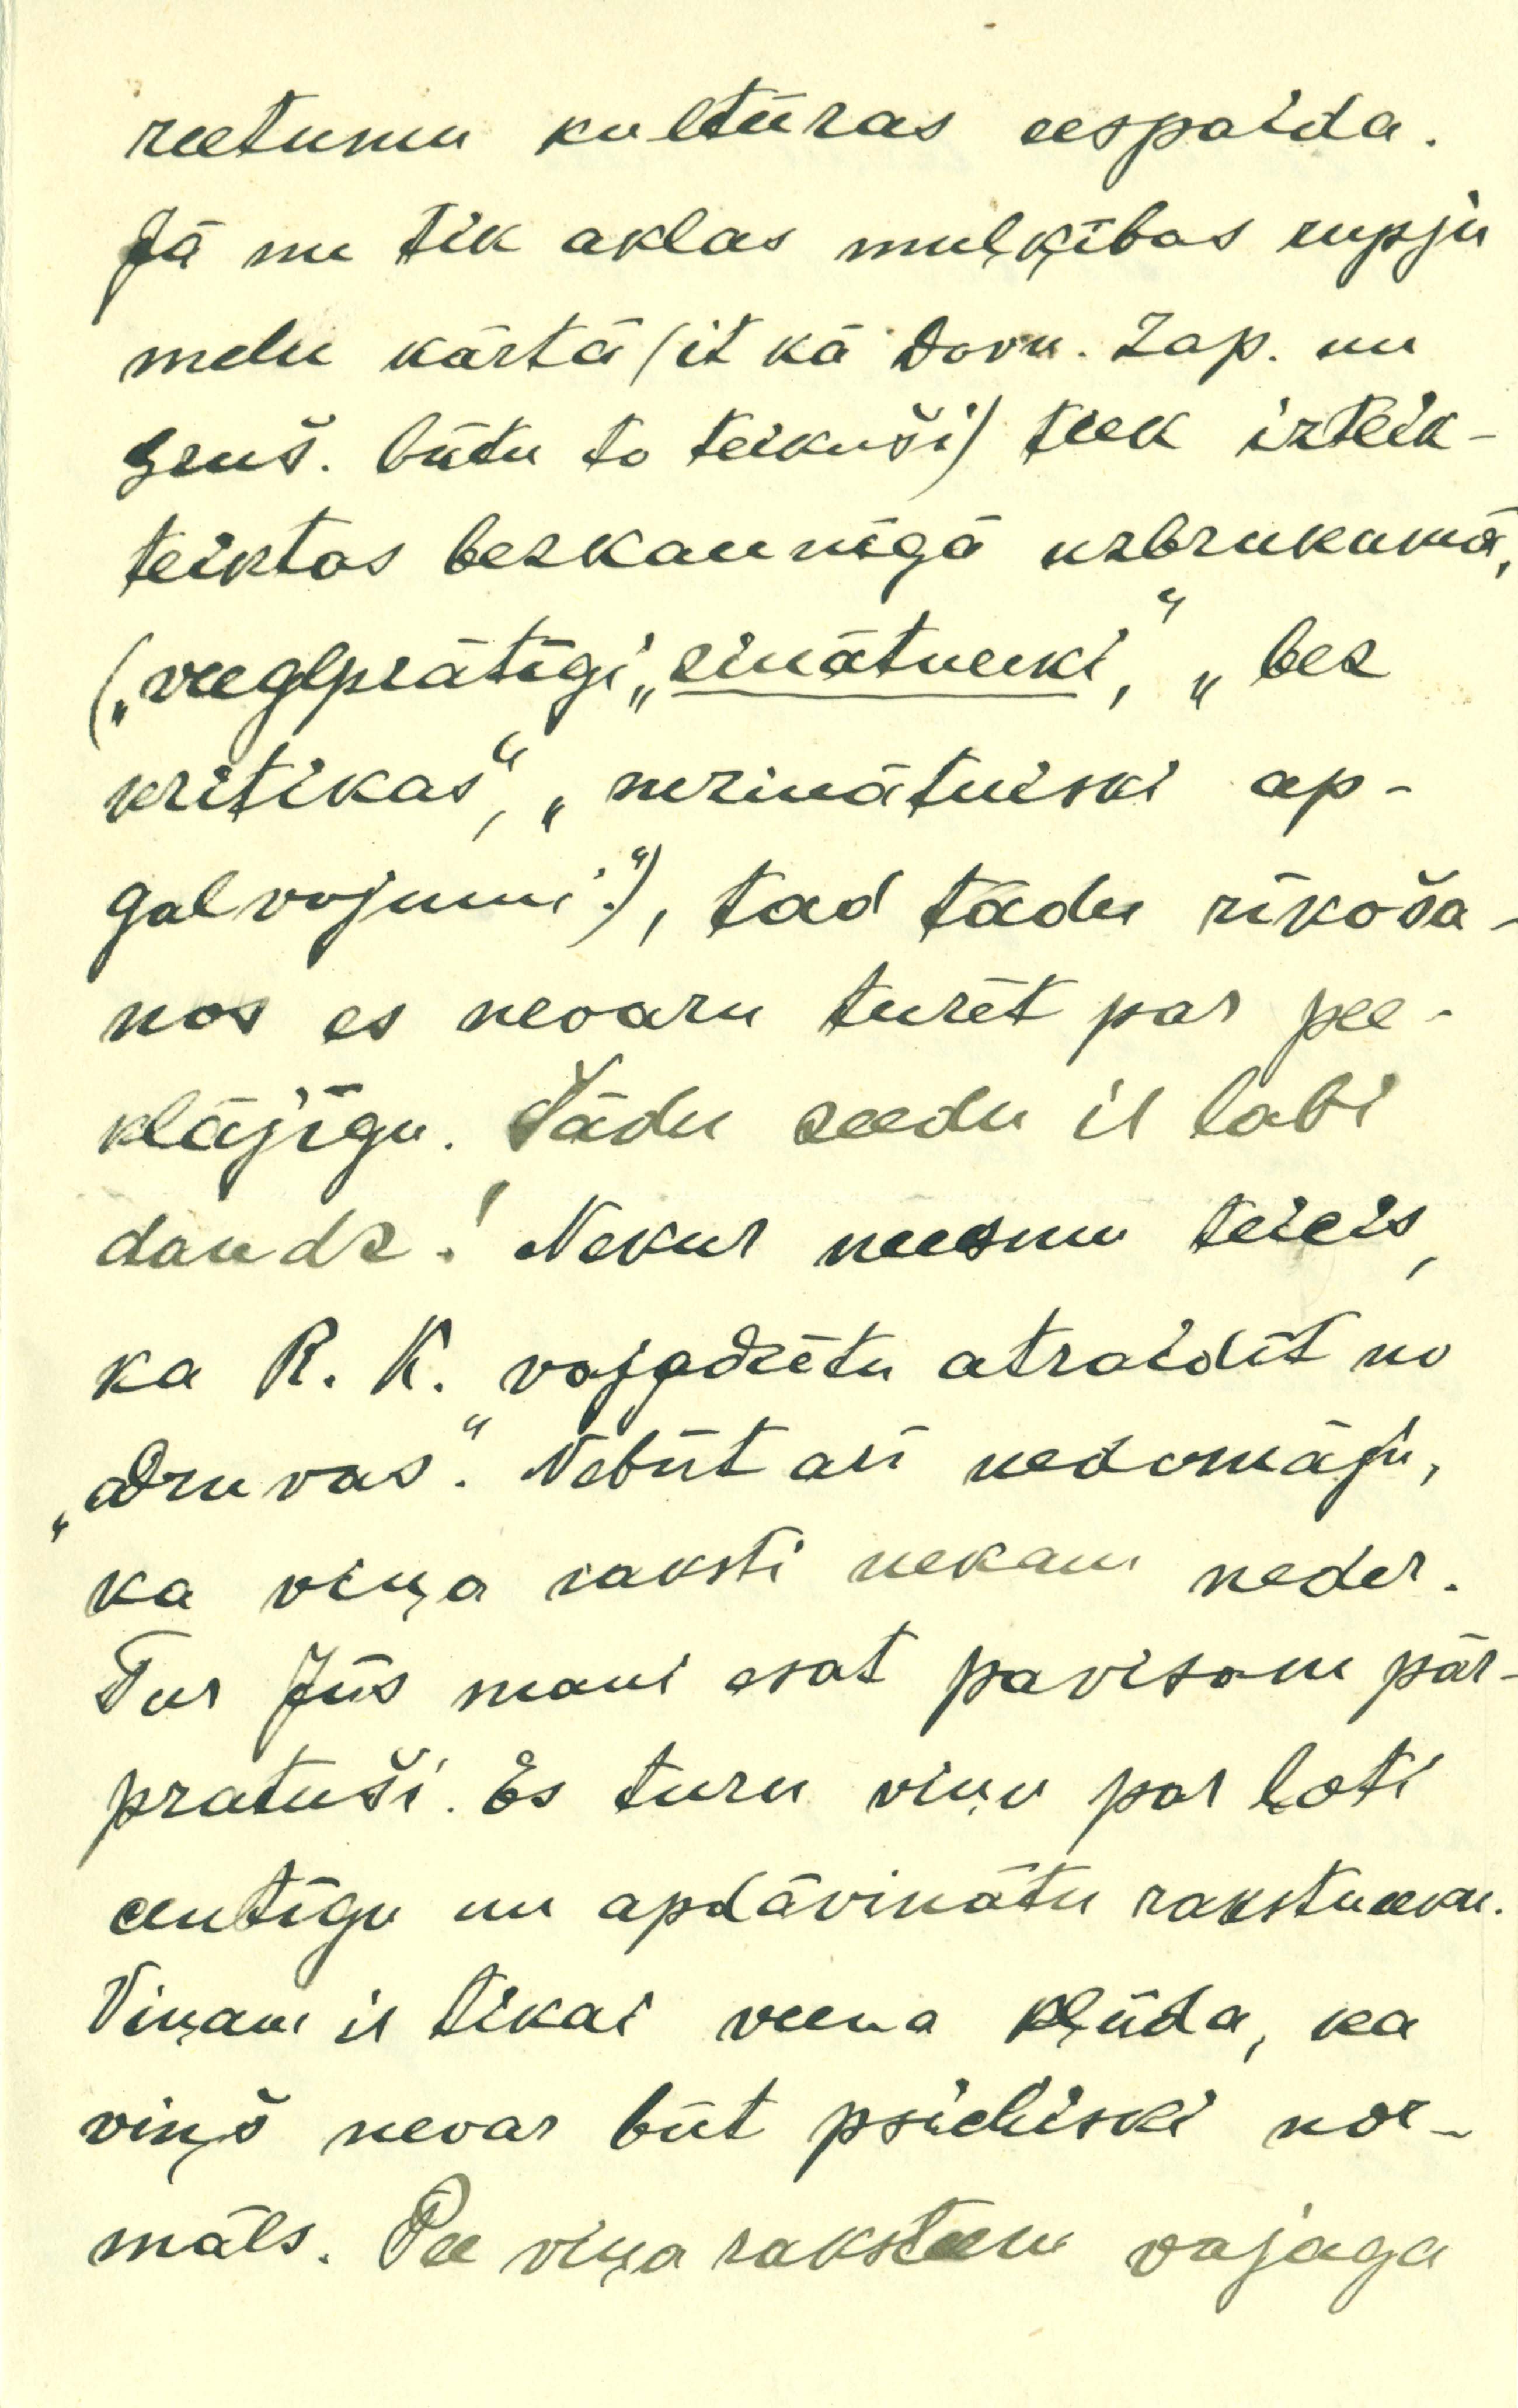 reetumu kultūras eespaida.
Jā nu tik aklas muļķības rupju
melu kārtā (it kā Dovn. Zap. un
Gruš. būtu to teikuši) teek izteik-
teiktas bezkaunīgā uzbrukumā,
(„veeglprātīgi „zinātneeki,“ „bez
kritikas“, „nezinātniski ap-
galvojumi“), tad tādu rīkoša-
nos es nevaru turēt par pee-
klājīgu. Tādu seedu ir labi
daudz! Nekur neesmu teicis,
ka R. K. vajadzētu atraidīt no
„Druvas“. Nebūt arī nedomāju,
ka viņa raksti nekam neder.
Tur Jūs mani esat pavisam pār-
pratuši. Es turu viņu par ļoti
centīgu un apdāvinātu rakstneeku.
Viņam ir tikai veena kļūda, ka
viņš nevar būt psichiski nor-
māls. Pee viņa raksteem vajaga